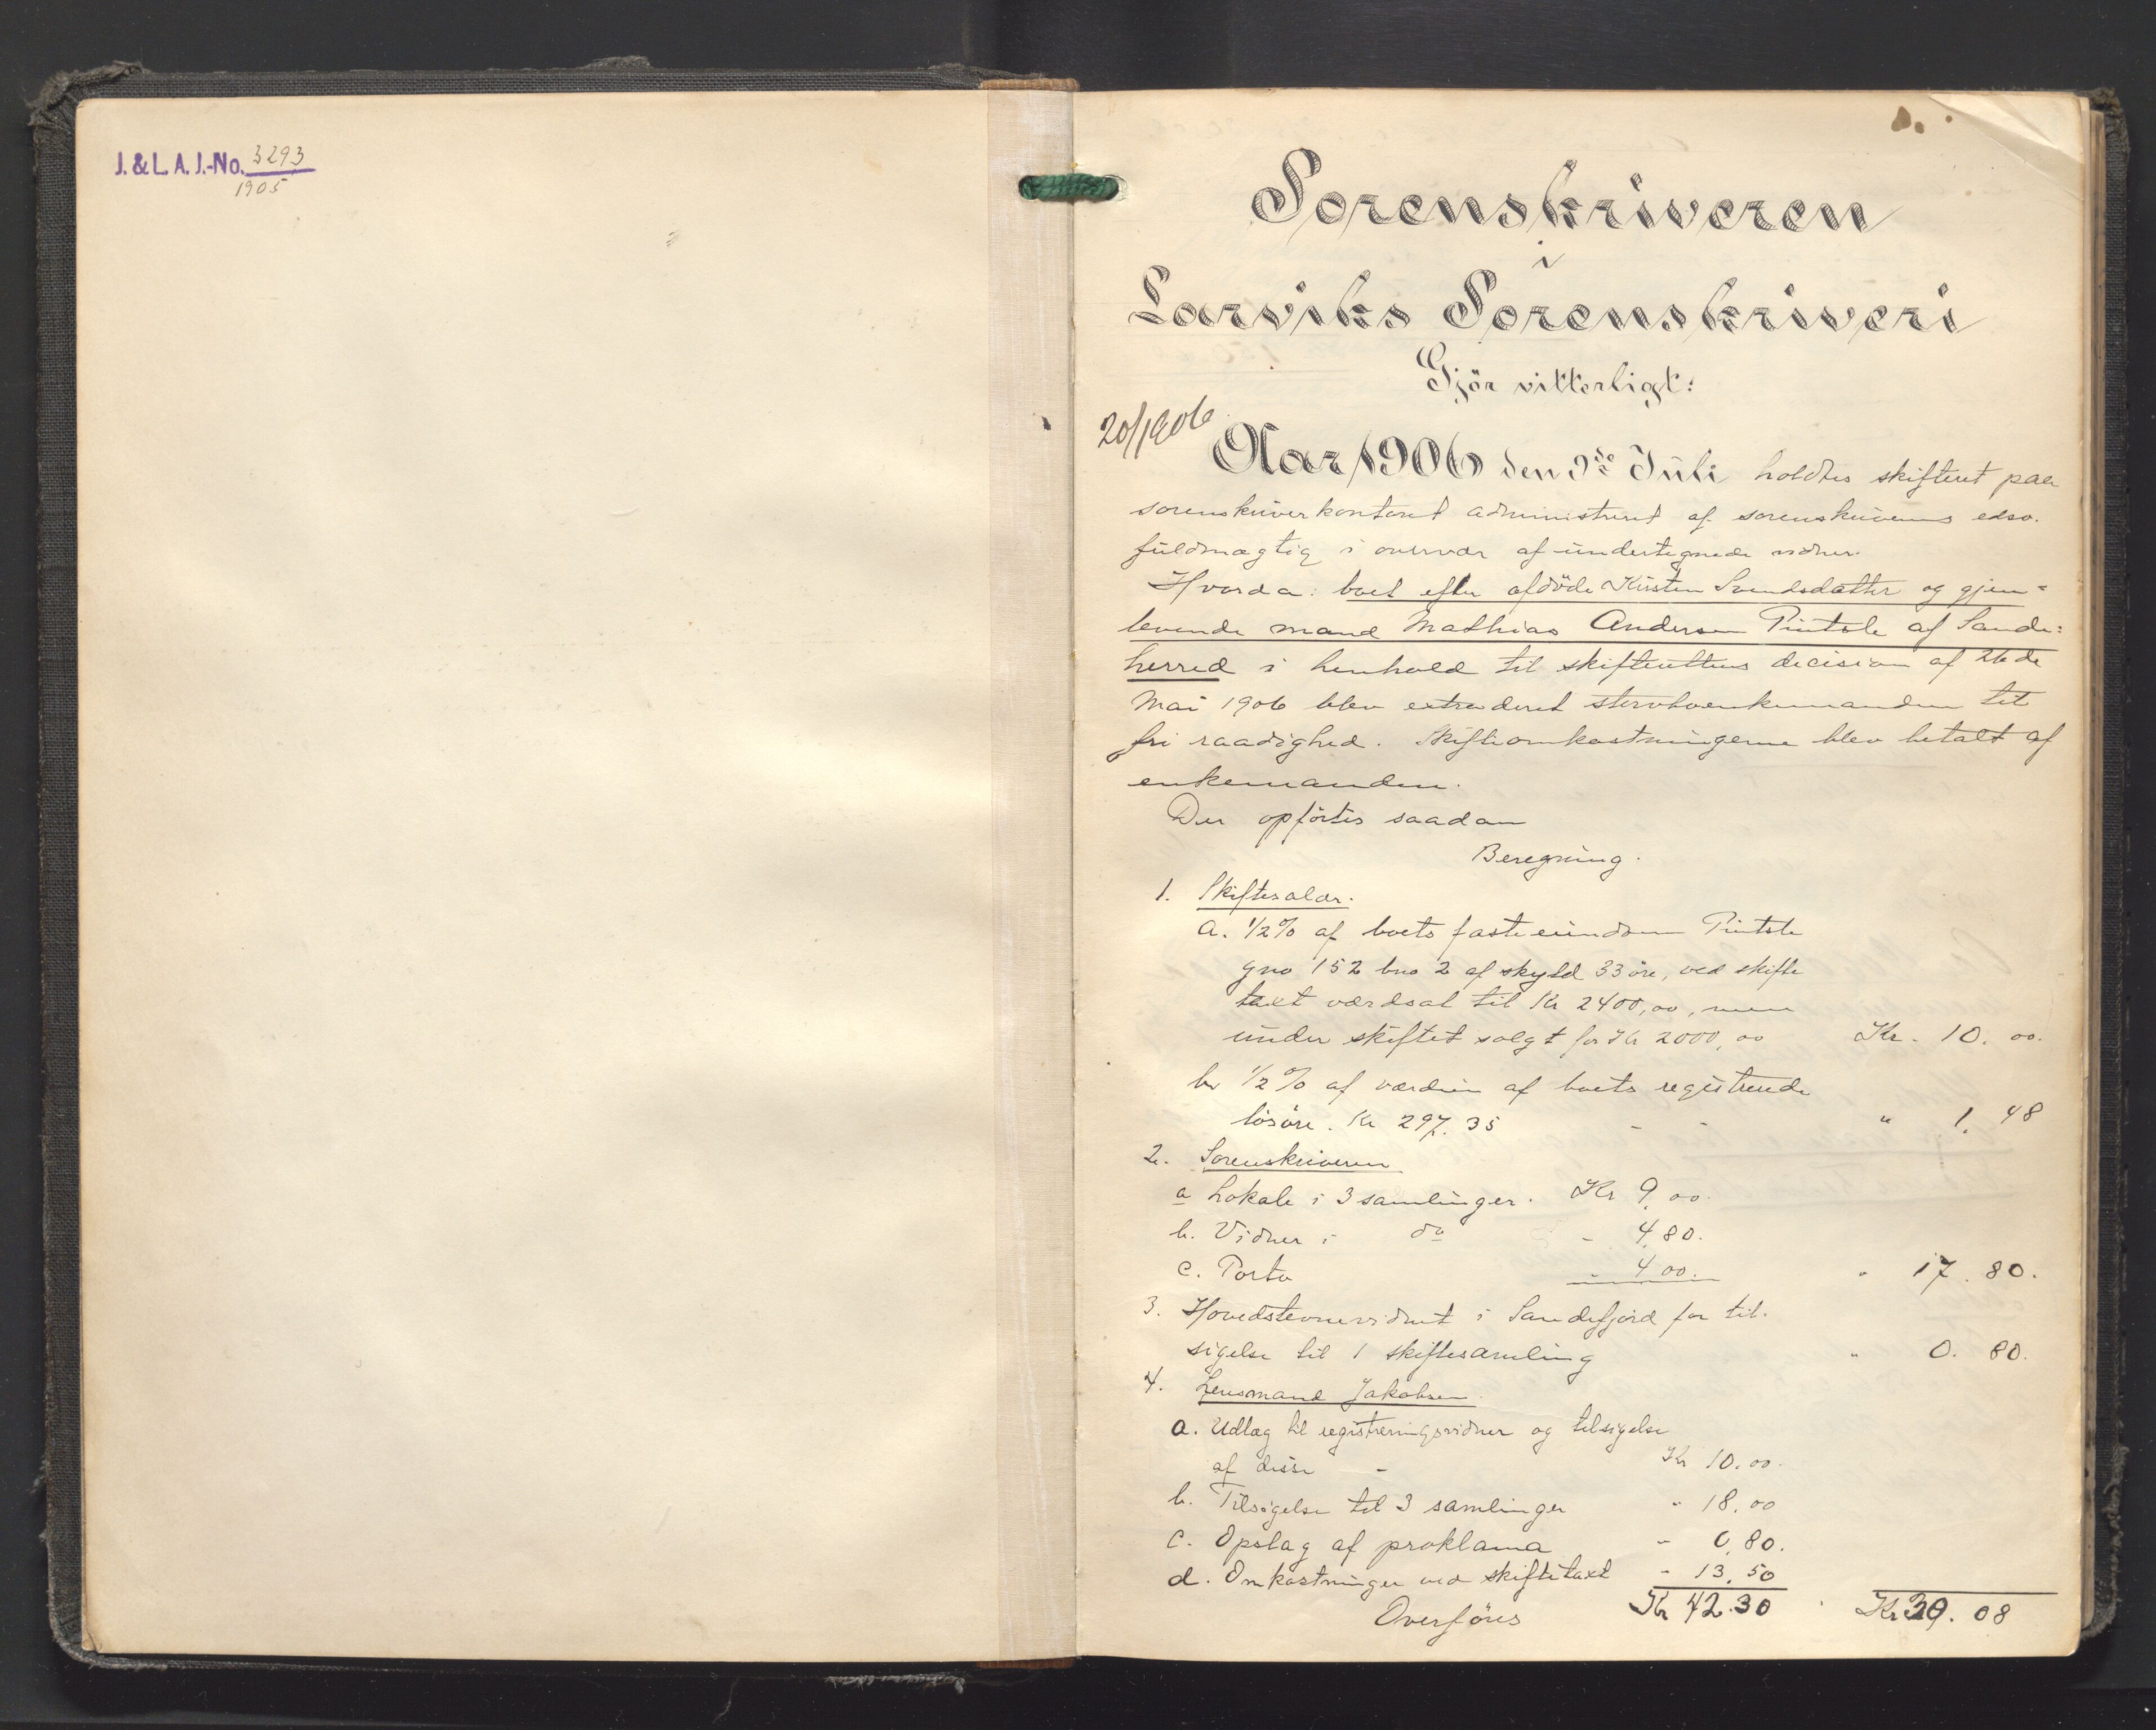 J. & L. A. J.-No. 3293
1905
Sorenskriveren
i
Larviks Sorenskriveri
Gjör vitterligt:
20/1906
Aar 1906 den 9de Juli holdtes skifteret paa
sorenskriverkontoret administreret af sorenskriverens edsv.
fuldmægtig i overvær af undertegnede vidner.
Hvorda: boet efter afdöde Kirsten Svendsdatter og gjen=
levende mand Mathias Andersen Pintsle af Sande=
herred i henhold til skifterettens decision af 26de
Mai 1906 blev extraderet stervboenkemanden til
fri raadighed. Skifteomkostningerne blev betalt af
enkemanden.
Der opförtes saadan
Beregning.
1. Skiftesalær.
a. 1/2% af boets faste eiendom Pintsle
gno 152 bno 2 af skyld 33 öre, ved skifte
taxt værdsat til Kr 2400,00, men
under skiftet solgt for Kr 2000,00 Kr. 10. 00.
b. 1/2% af værdien af boets registrerede
lösöre. Kr 297.35 - - " 1. 48
2. Sorenskriveren
a Lokale i 3 samlinger. Kr 9.00.
b. Vidner i do - 4.80.
c. Porto - 4.00. " 17. 80.
3. Hovedstevnevidnet i Sandefjord for til-
sigelse til 1 skiftesamling " 0. 80.
4. Lensmand Jakobsen.
a. Udlæg til registreringsvidner og tilsigelse
af disse - Kr 10.00.
b. Tilsigelse til 3 samlinger " 18.00
c. Opslag af proklama - 0.80.
d. Omkostninger ved skiftetaxt - 13.50
Overföres Kr 42.30 Kr 30. 08